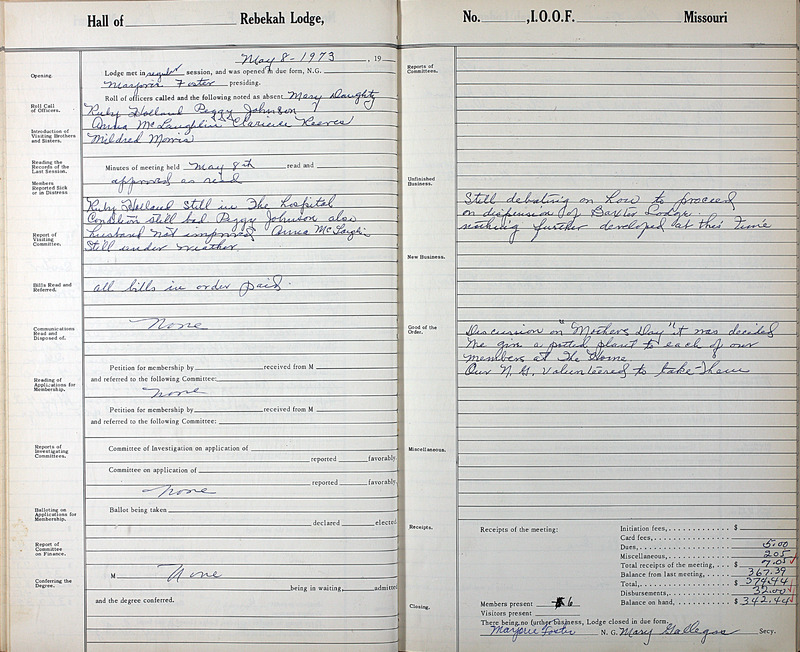 Hall of Rebekah Lodge,
May 8 - 1973, 19
Opening.
Lodge met in regular session, and was opened in due form, N.G.
Marjorie Foster presiding.
Roll Call of Officers.
Roll of officers called and the following noted as absent Mary Daughty
Ruby Holland Peggy Johnson
Anna McLaughlin Clariece Reeves
Introduction of Visiting Brothers and Sisters.
Mildred Morris
Reading the Records of the Last Session.
Minutes of meeting held May 8th read and
approved as read
Members Reported Sick or in Distress
Ruby Holland Still in The hospital
Condition still bad Peggy Johnson also
Report of Visiting Committee.
husband not improved Anna McLauglin
Still under weather
Bills Read and Referred.
all bills in order paid.
Communications Read and Disposed of.
None
Petition for membership by received from M
and referred to the following Committee:
Reading of Applications for Membership.
None
Petition for membership by received from M
and referred to the following Committee:
Reports of Investigating Committees.
Committee of Investigation on application of
reported favorably.
Committee on application of
reported favorably.
None
Balloting on Applications for Membership.
Ballot being taken
declared elected
Report of Committee on Finance.
Conferring the Degree.
M None
being in waiting, admitted
and the degree conferred.
No. ,I.O.O.F. Missouri
Reports of Committees.
Unfinished Business.
Still debating on how to proceed
on dispension of Baxter Lodge.
nothing further developed at this Time
New Business.
Good of the Order.
Discussion on "Mothers Day" it was decided
we give a potted plant to each of our
members at The Home.
Our N.G. volunteered to take them
Miscellaneous.
Receipts.
Receipts of the meeting:
Initiation fees, $
Card fees,
Dues, 5.00
Miscellaneous, 2.05
Total receipts of the meeting, $ 7.05
Balance from last meeting, 367.39
Total, $ 374.44
Disbursements, 32.00
Balance on hand, $ 342.44
Closing.
Members present 6
Visitors present
There being no further business, Lodge closed in due form.
Marjorie Foster N. G. Mary Gallegos Secy.